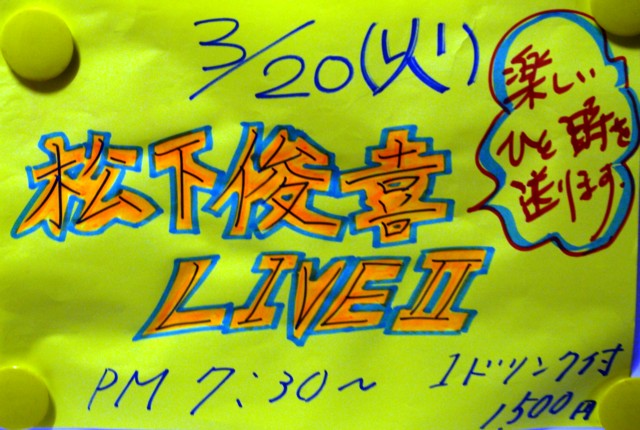 3/20(火)
楽しい
ひと時を
送ります.
松下俊喜
LIVE II
PM 7:30~
1ドリンク付
1,500円